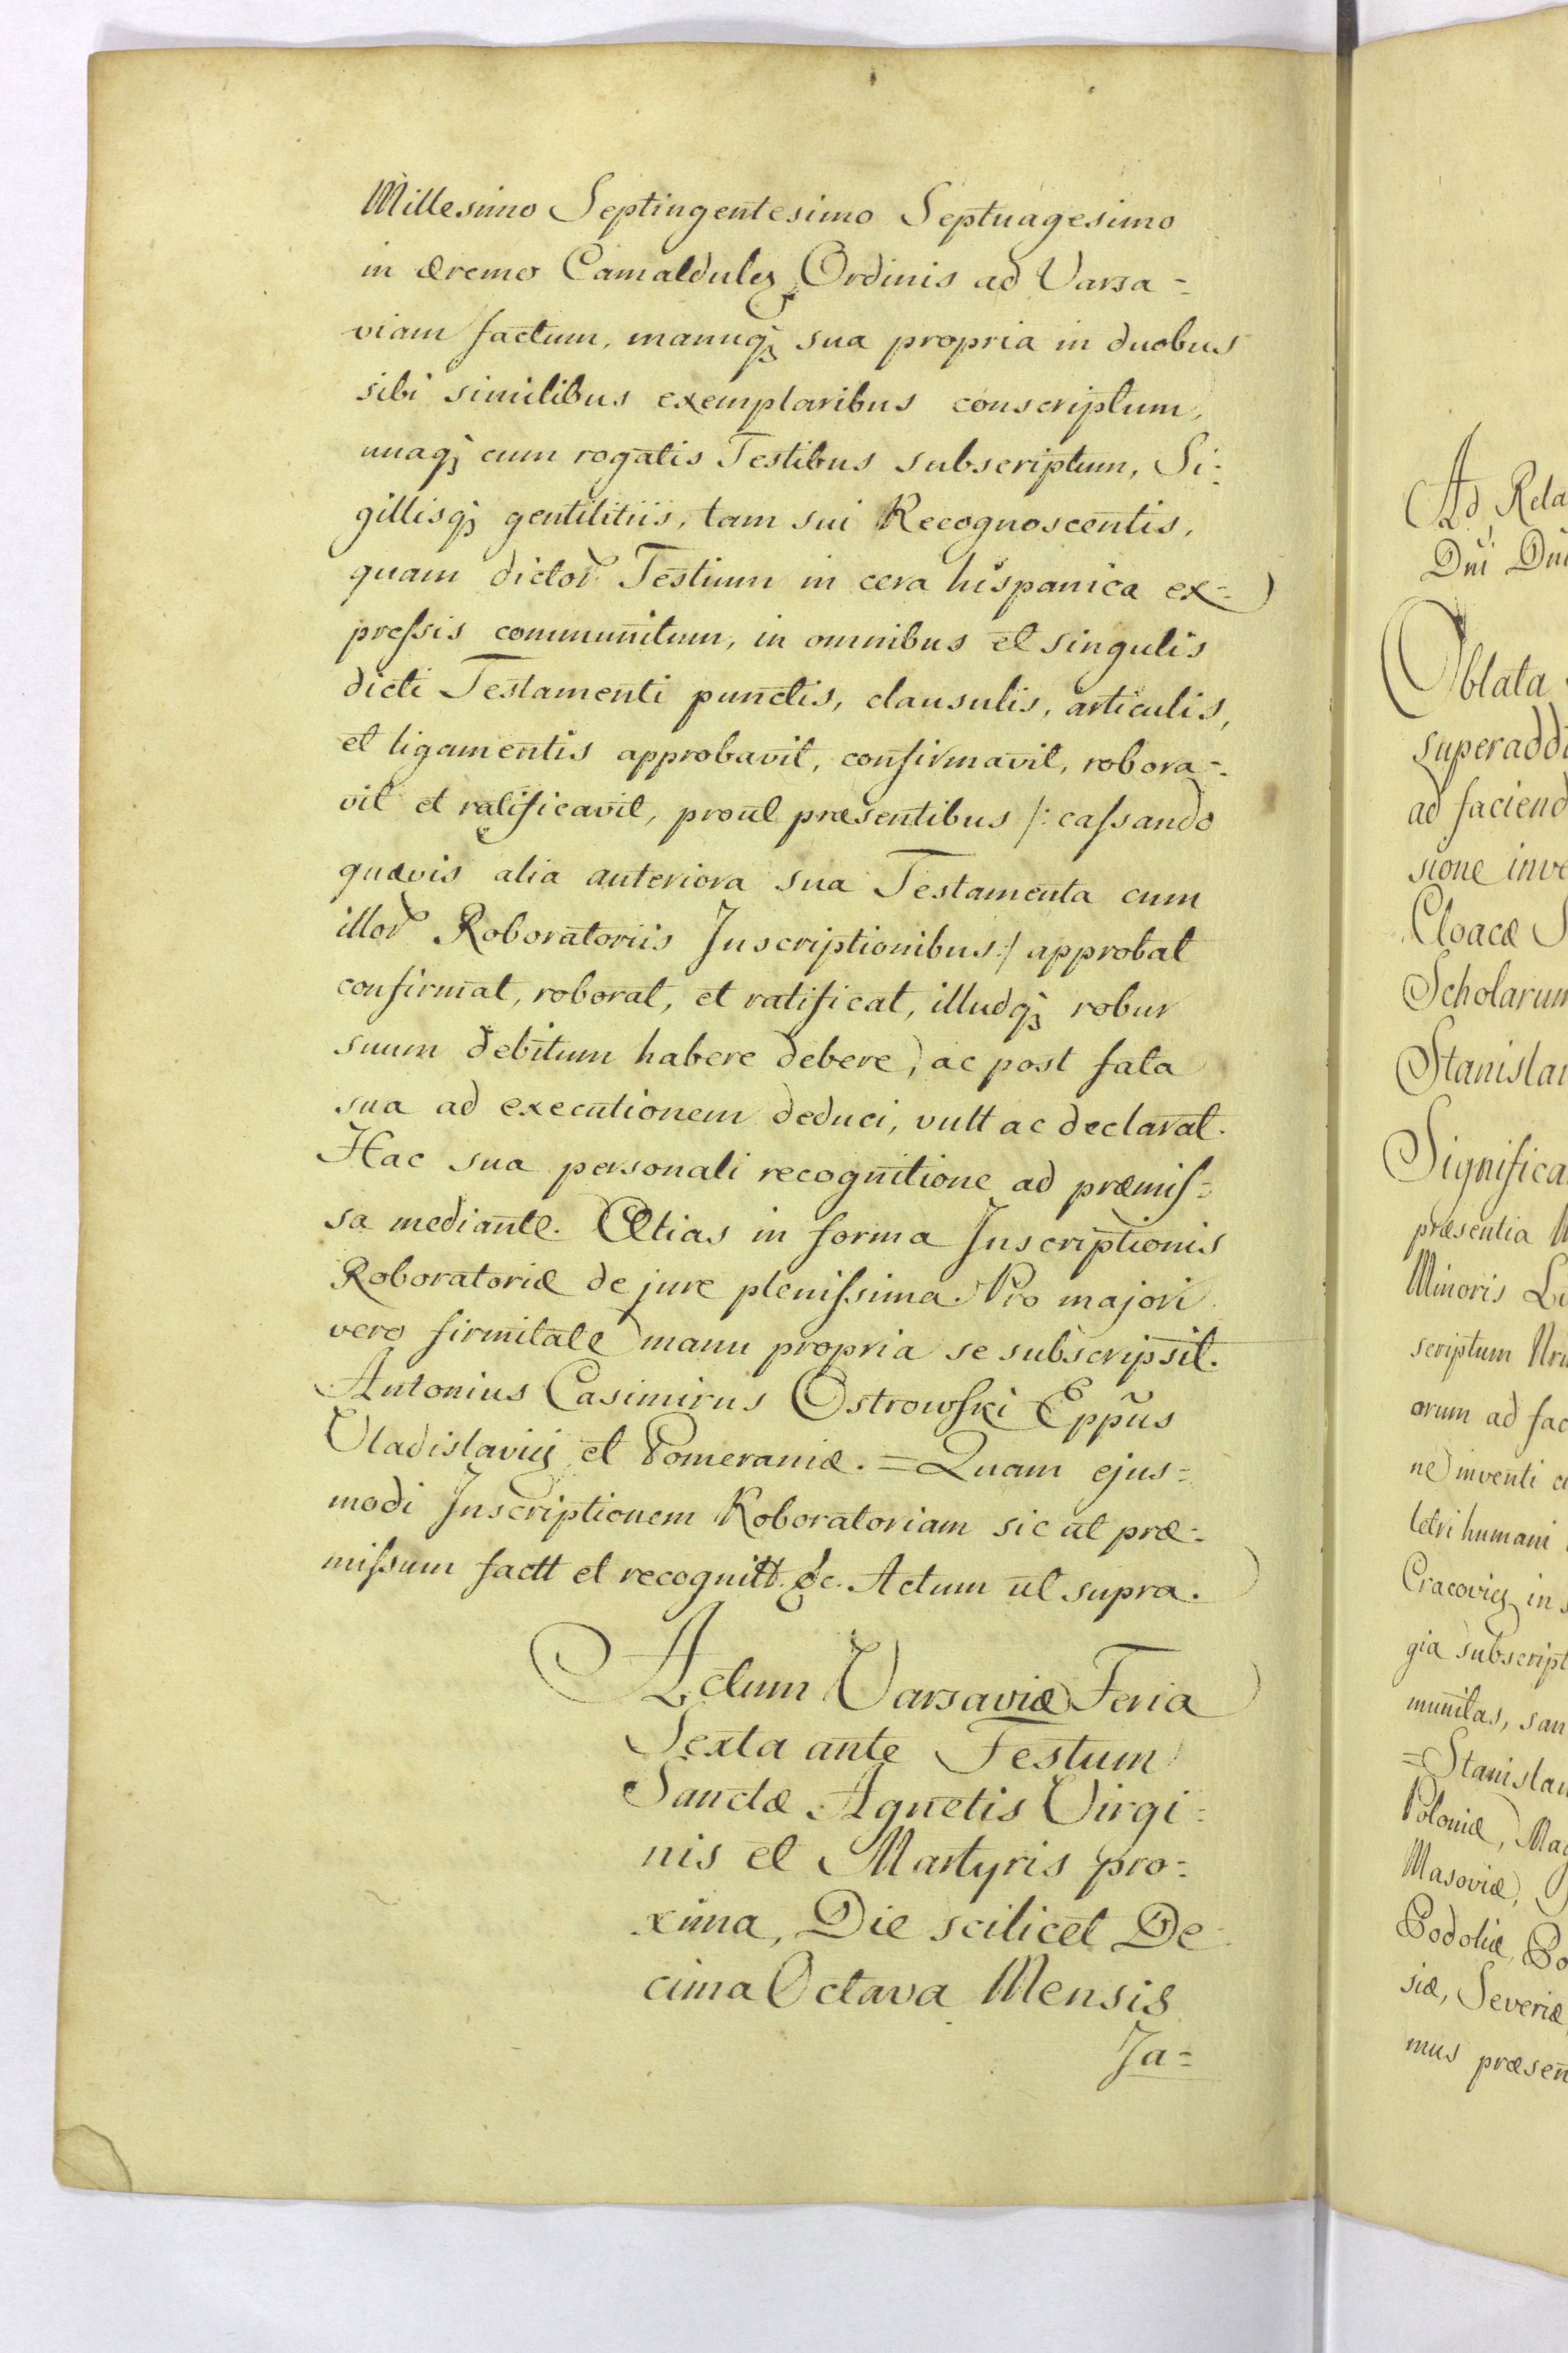 Millesimo Septingentesimo Septuagesimo
in æremo Camaldulen Ordinis ad Varsa=
viam factum, manuq; sua propria in duobus
sibi similibus exemplaribus conscriptum,
unaq; cum rogatis Testibus subscriptum, Si=
gillisq; gentilitiis, tam sui Recognoscentis,
quam dictor Testium in cera hispanica ex=
preſsis communitum, in omnibus et singulis
dicti Testamenti punctis, clausulis, articulis,
et ligamentis approbavit, confirmavit, robora=
vit et ratificavit, prout præsentibus /: caſsando
quævis alia anteriora sua Testamenta cum
illor Roboratoriis Inscriptionibus :/ approbat
confirmat, roborat, et ratificat, illudq; robur
suum debitum habere debere, ac post fata
sua ad executionem deduci, vult ac declarat.
Hac sua personali recognitione ad præmiſ=
sa mediante. Ætias in forma Inscriptionis
Roboratoriæ de jure pleniſsima. Pro majori
vero firmitate manu propria se subscripsit.
Antonius Casimirus Ostrowski Eppus
Vladislavien et Pomeraniæ. = Quam ejus=
modi Inscriptionem Roboratoriam sic ut præ=
miſsum factt et recognitt. &c. Actum ut supra.
Actum Varsaviæ Feria
Sexta ante Festum
Sanctæ Agnetis Virgi=
nis et Martyris pro=
xima, Die scilicet De=
cima Octava Mensis
Ja=
Ad Rela
Dni Dni
Oblata
superaddi
ad faciend
sione inve
Cloacæ S
Scholarum
Stanislai
Significa
præsentia
Minoris
scriptum
orum ad fac
ne inventi
letri humani
Cracovien in
gia subscript
munitas, san
=Stanislau
Poloniæ, Mag
Masoviæ,
Podoliæ, Po
siæ, Severiæ
mus præsen